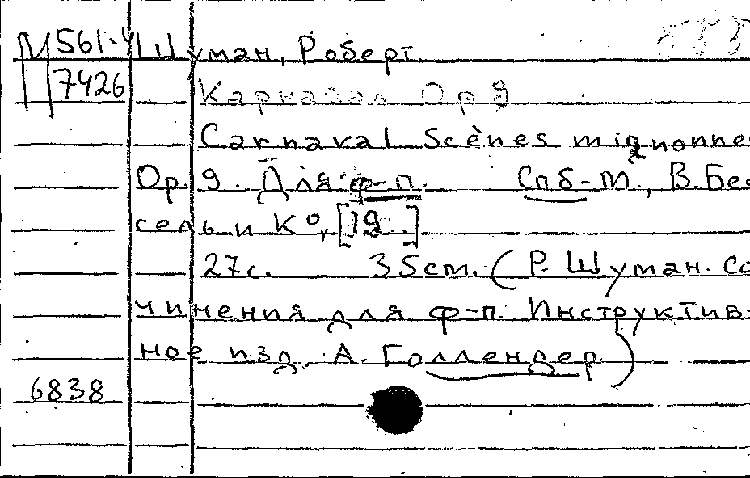 М 561.4 Шуман, Роберт
7426
Карнавал Ор 9
Carnaval Scènes mignonne
Ор. 9. Для ф-п. Спб-М., В. Бес
сель и К°, [19..]
27с. 35cm. (Р. Шуман. Со
чинения для ф-п. Инструктив-
ное изд. А. Голлендер)
6838